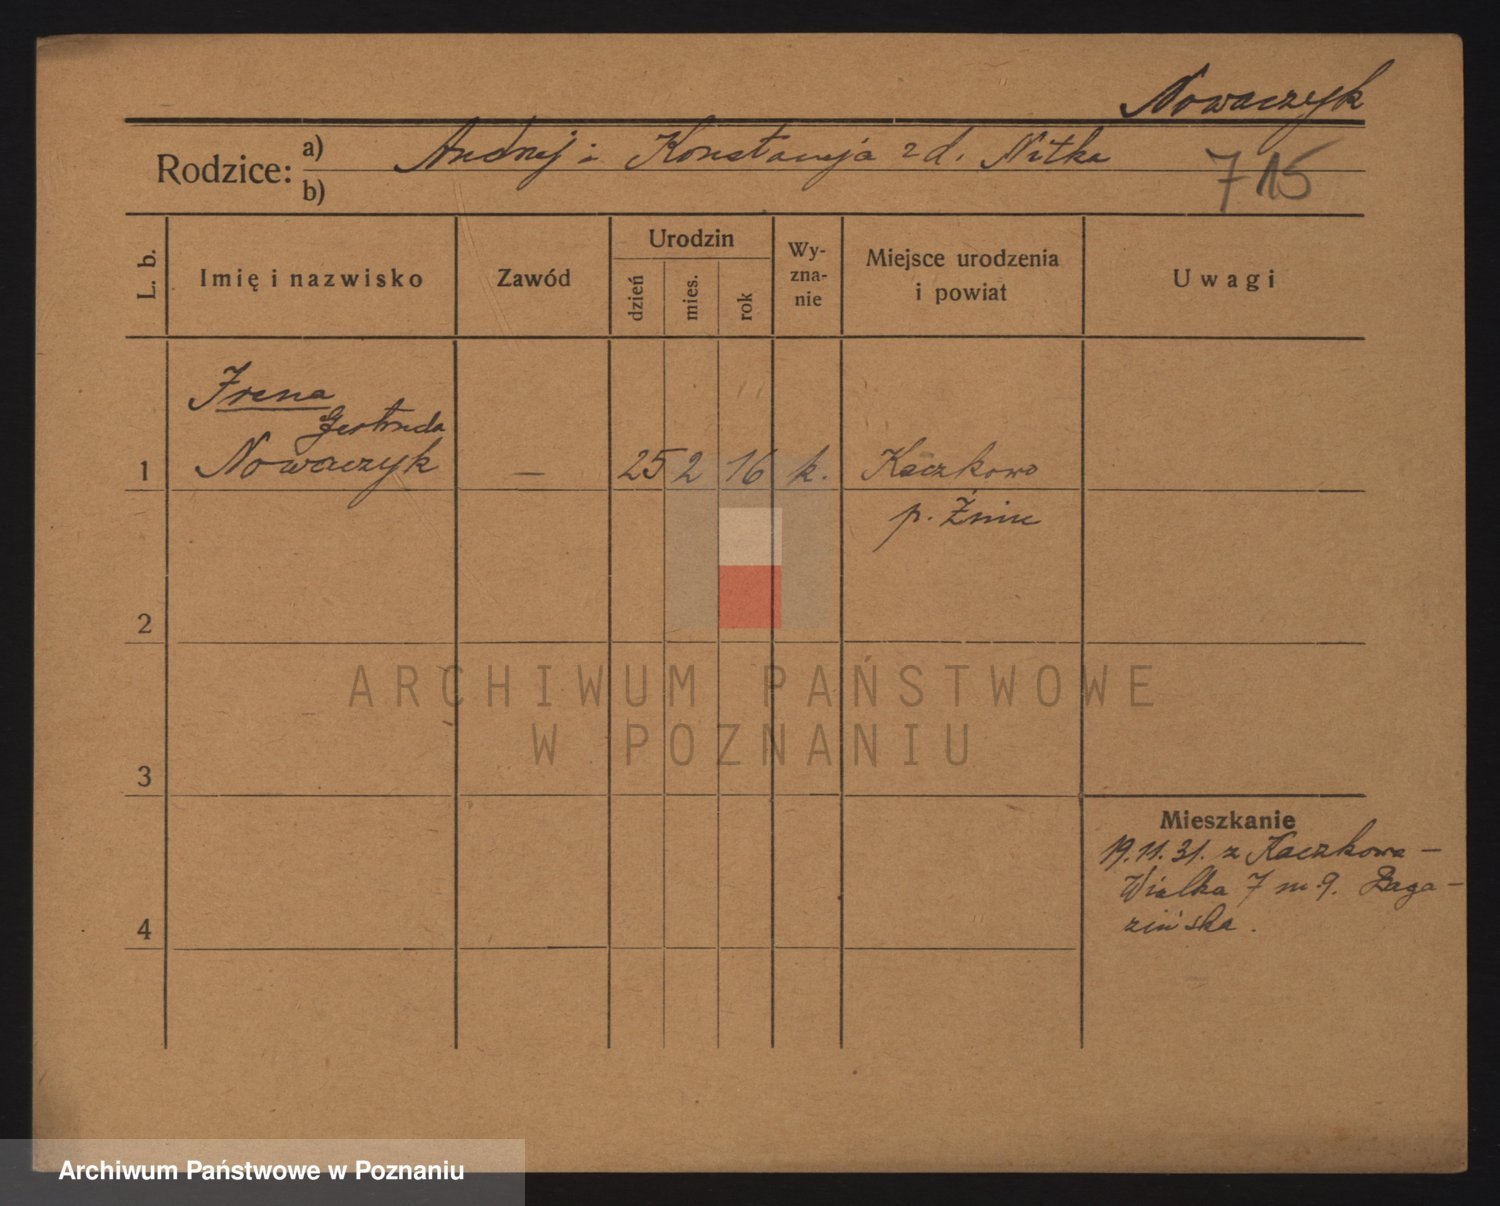 Nowaczyk
Rodzice: a) Andrzej i Konstancja z d. Nitka
b)
715
L. b.
Imię i nazwisko
Zawód
Urodzin
dzień
mies.
rok
Wy-
zna-
nie
Miejsce urodzenia
i powiat
Uwagi
Irena
Gertruda
1 Nowaczyk — 25 2 16 k. Kaczkowo
p. Żnin
2
ARCHIWUM PAŃSTWOWE
W POZNANIU
3
Mieszkanie
19.11.31. z Kaczkowa —
Wielka 7 m. 9.
4
Archiwum Państwowe w Poznaniu